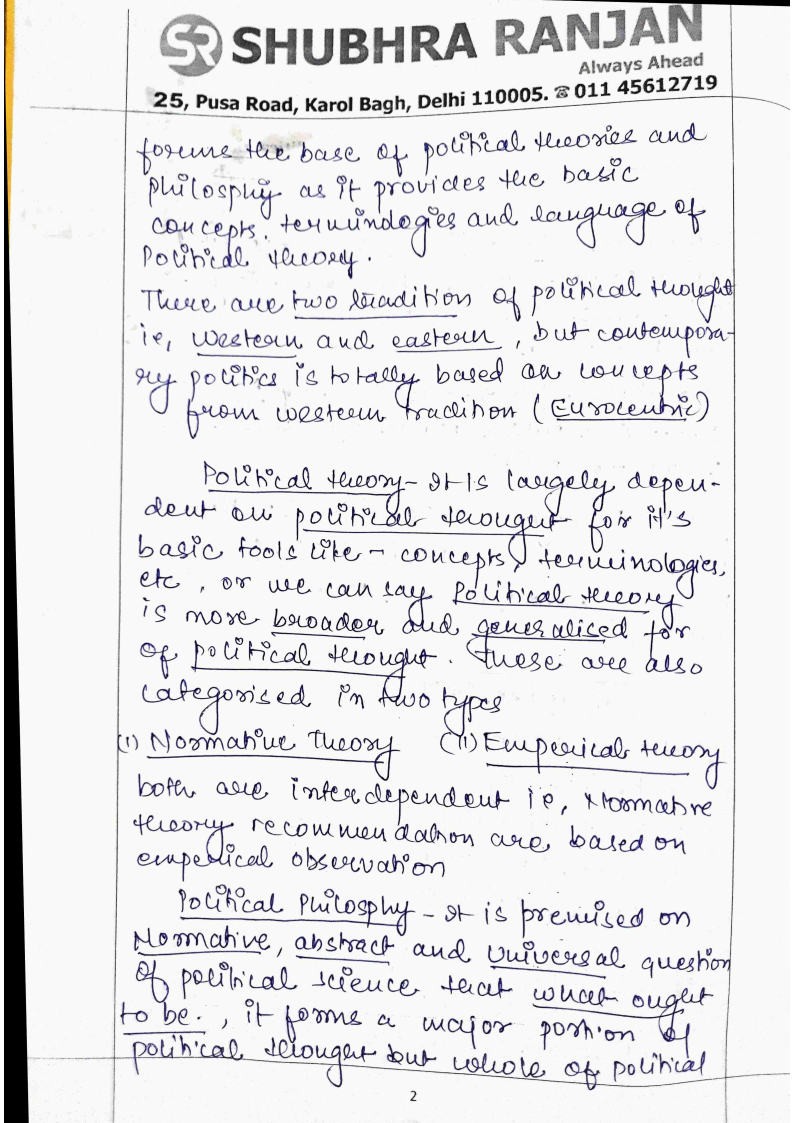 SR SHUBHRA RANJAN
Always Ahead
25, Pusa Road, Karol Bagh, Delhi 110005. ☎ 011 45612719
forms the base of political theories and
philosphy as it provides the basic
concepts, terminologies and language of
Political theory.
There are two tradition of political thought
ie, western and eastern, but contempora-
ry politics is totally based on concepts
from western tradition (Eurocentric)
Political theory - It is largely depen-
dent on political thought for it's
basic tools like - concepts, terminologies,
etc, or we can say Political theory
is more broader and generalised for
of political thought. These are also
categorised in two types
(i) Normative Theory (ii) Emperical theory
both are interdependent ie, Normative
theory recommendation are based on
emperical observation
Political Philosphy - It is premised on
Normative, abstract and Universal question
of political science that what ought
to be., it forms a major portion of
political thought but whole of political
2